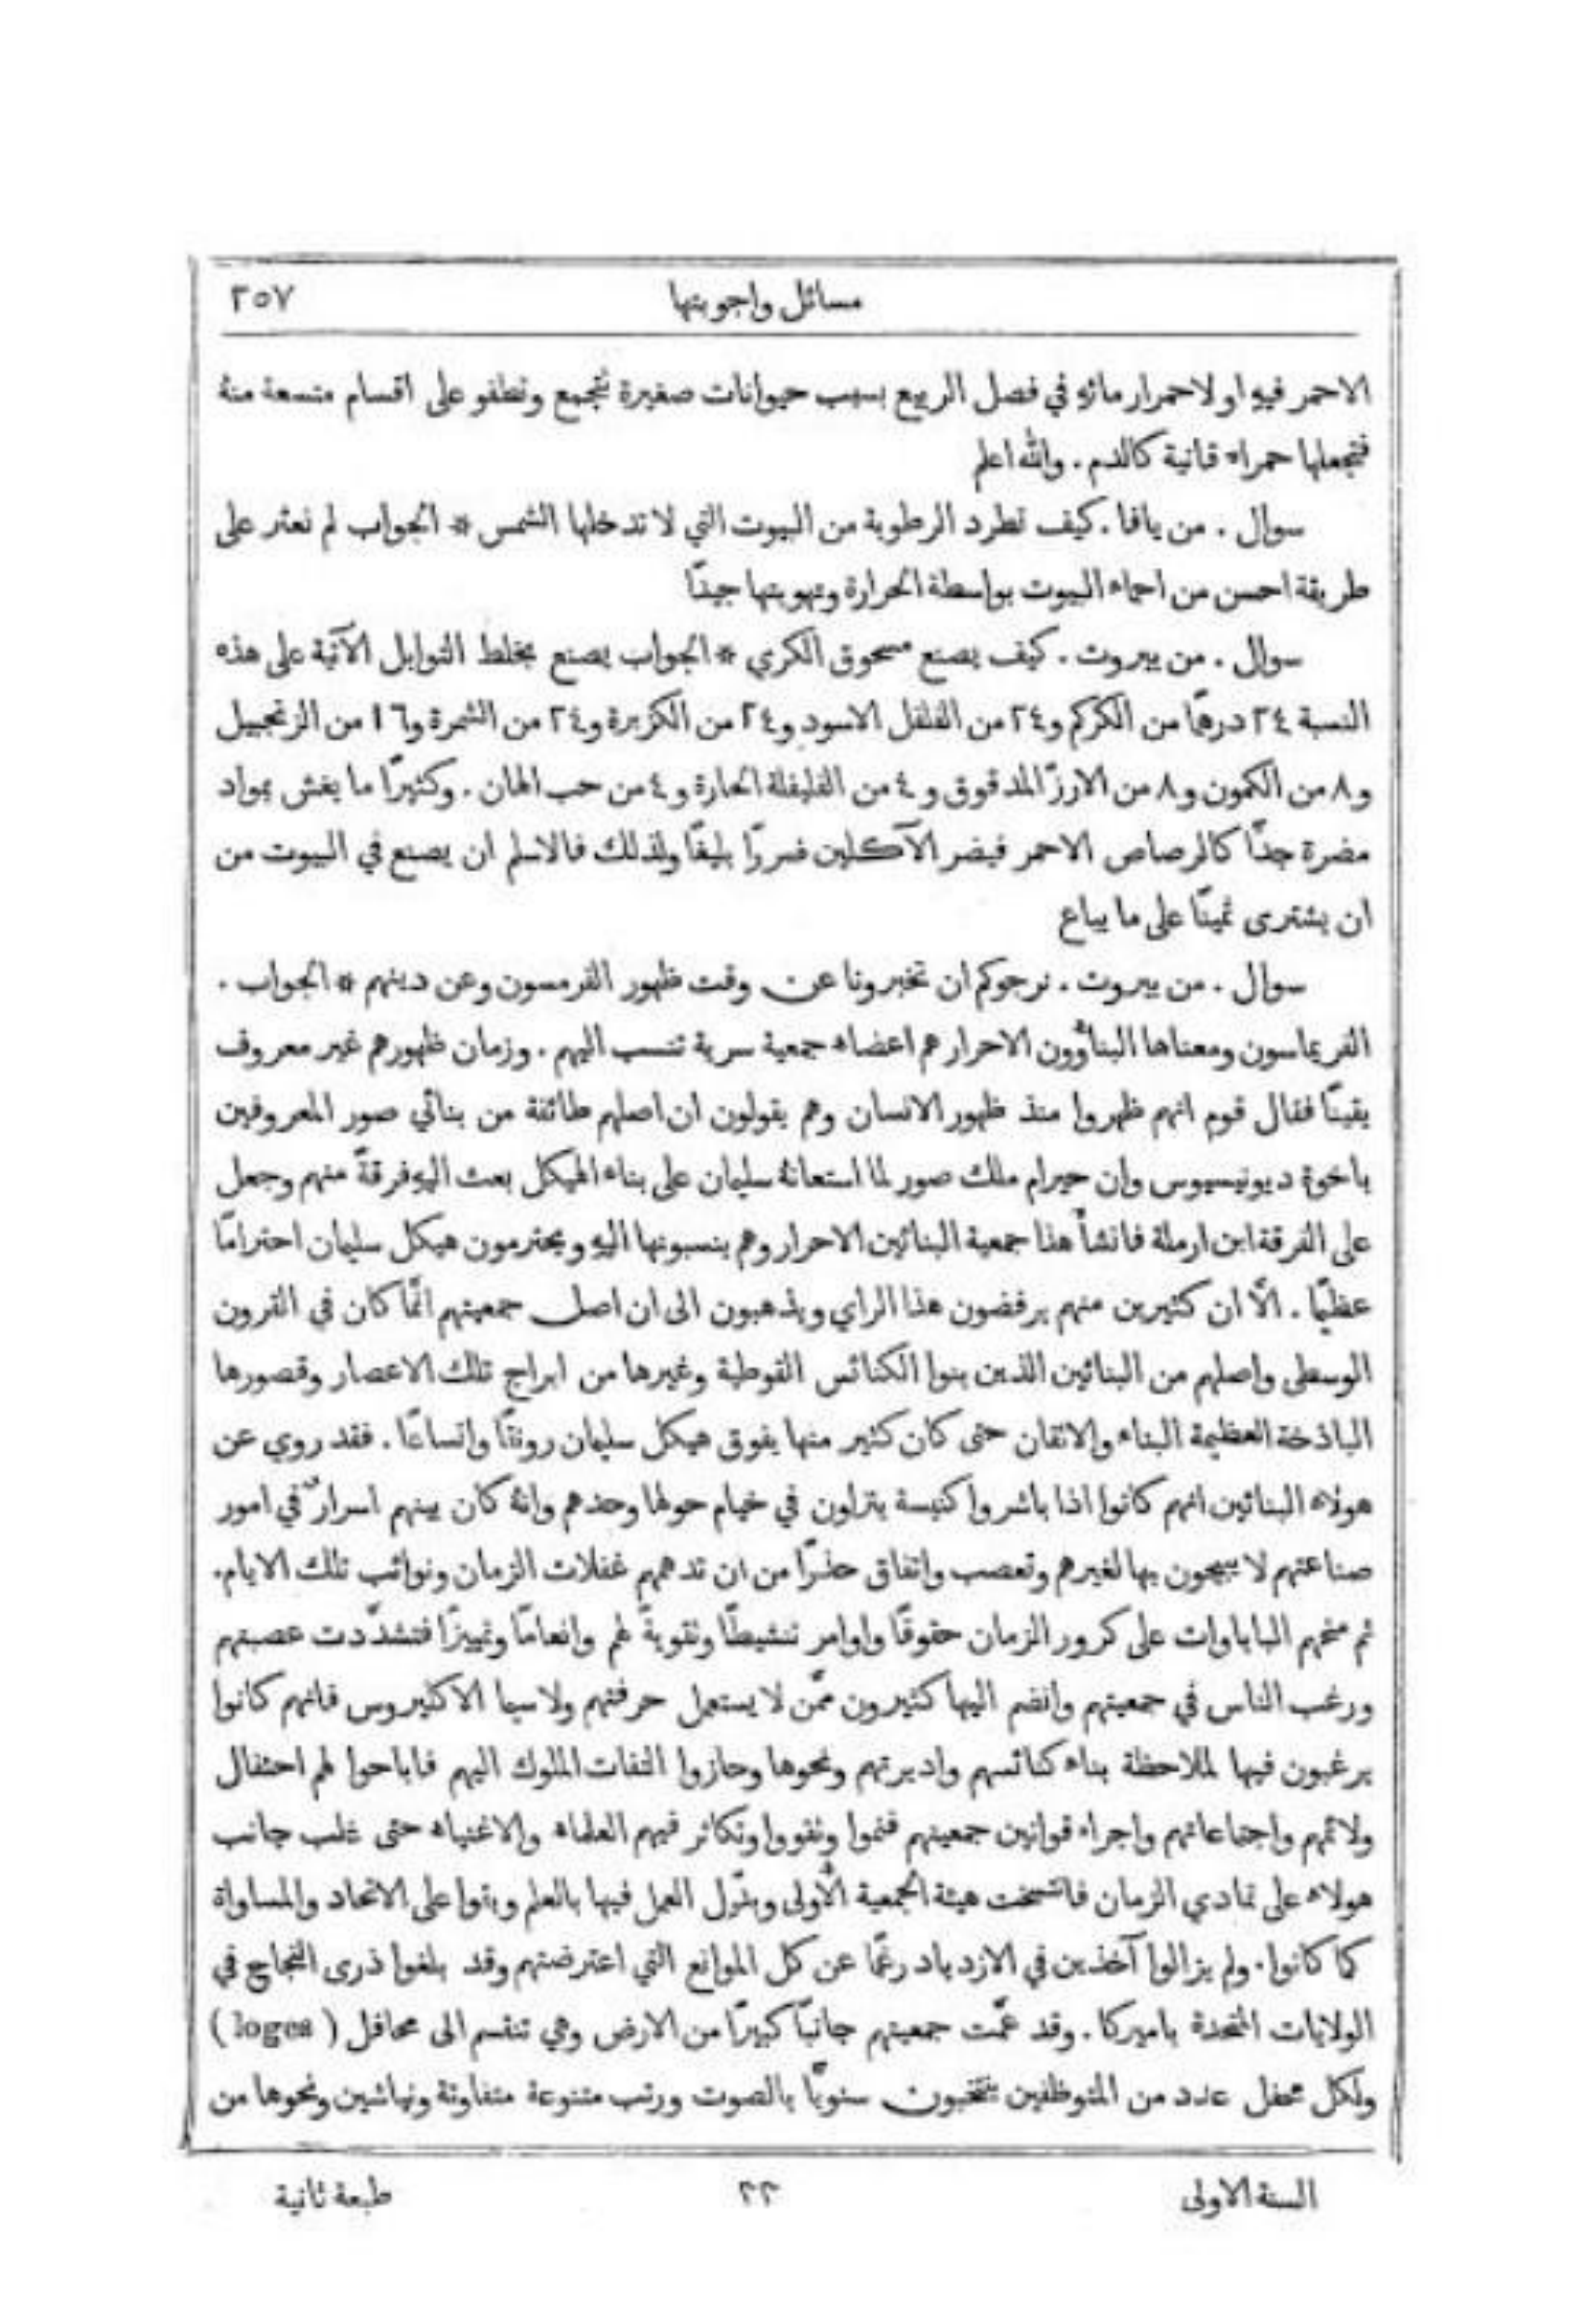 مسائل واجوبتها ٢٥٧
الاحمر فيهِ او لاحمرار مائهِ في فصل الربيع بسبب حيوانات صغيرة تجمع وتطفو على اقسام متسعة منهُ
فتجعلها حمراء قانية كالدم . والله اعلم
سوال . من يافا . كيف تطرد الرطوبة من البيوت التي لا تدخلها الشمس * الجواب لم نعثر على
طريقة احسن من احماء البيوت بواسطة الحرارة وتهويتها جيدًا
سوال . من بيروت . كيف يصنع مسحوق الكري * الجواب يصنع بخلط التوابل الآتية على هذه
النسبة ٢٤ درهمًا من الكركم و٢٤ من الفلفل الاسود و٢٤ من الكزبرة و٢٤ من الشمرة و١٦ من الزنجبيل
و٨ من الكمون و٨ من الارزّ المدقوق و٤ من الفليفلة الحارة و٤ من حب الهان . وكثيرًا ما يغش بمواد
مضرة جدًّا كالرصاص الاحمر فيضر الآكلين ضررًا بليغًا ولذلك فالاسلم ان يصنع في البيوت من
ان يشترى ثمينًا على ما يباع
سوال . من بيروت . نرجوكم ان تخبرونا عن وقت ظهور الفرمسون وعن دينهم * الجواب .
الفريماسون ومعناها البناؤُون الاحرار هم اعضاء جمعية سرية تنسب اليهم . وزمان ظهورهم غير معروف
يقينًا فقال قوم انهم ظهروا منذ ظهور الانسان وهم يقولون ان اصلهم طائفة من بنائي صور المعروفين
باخوة ديونيسيوس وان حيرام ملك صور لما استعانهُ سليمان على بناء الهيكل بعث اليهِ فرقةً منهم وجعل
على الفرقة ابن ارملة فانشأ هذا جمعية البنائين الاحرار وهم ينسبونها اليهِ ويحترمون هيكل سليمان احترامًا
عظيمًا . الَّا ان كثيرين منهم يرفضون هذا الراي ويذهبون الى ان اصل جمعيتهم انَّما كان في القرون
الوسطى واصلهم من البنائين الذين بنوا الكنائس القوطية وغيرها من ابراج تلك الاعصار وقصورها
الباذخة العظيمة البناء والاتقان حتى كان كثير منها يفوق هيكل سليمان رونقًا واتساعًا . فقد روي عن
هولاء البنائين انهم كانوا اذا باشروا كنيسة ينزلون في خيام حولها وحدهم وانهُ كان بينهم اسرارٌ في امور
صناعتهم لا يبيحون بها لغيرهم وتعصب واتفاق حذرًا من ان تدهمهم غفلات الزمان ونوائب تلك الايام.
ثم منحهم الباباوات على كرور الزمان حقوقًا واوامر تنشيطًا وتقويةً لهم وانعامًا وتمييزًا فتشدَّدت عصبتهم
ورغب الناس في جمعيتهم وانضم اليها كثيرون ممَّن لا يستعمل حرفتهم ولا سيما الاكليروس فانهم كانوا
يرغبون فيها لملاحظة بناء كنائسهم واديرتهم ونحوها وحازوا التفات الملوك اليهم فاباحوا لهم احتفال
ولائمهم واجتماعاتهم واجراء قوانين جمعيتهم فنموا وتقووا وتكاثر فيهم العلماء والاغنياء حتى غلب جانب
هولاء على تمادي الزمان فانتسخت هيئة الجمعية الأُولى وبدّل العمل فيها بالعلم وبقوا على الاتحاد والمساواة
كما كانوا . ولم يزالوا آخذين في الازدياد رغمًا عن كل الموانع التي اعترضتهم وقد بلغوا ذرى النجاح في
الولايات المتحدة باميركا . وقد عمَّت جمعيتهم جانبًا كبيرًا من الارض وهي تنقسم الى محافل ( loges )
ولكل محفل عدد من المتوظفين ينتخبون سنويًّا بالصوت ورتب متنوعة متفاوتة ونياشين ونحوها من
السنة الاولى ٢٢ طبعة ثانية